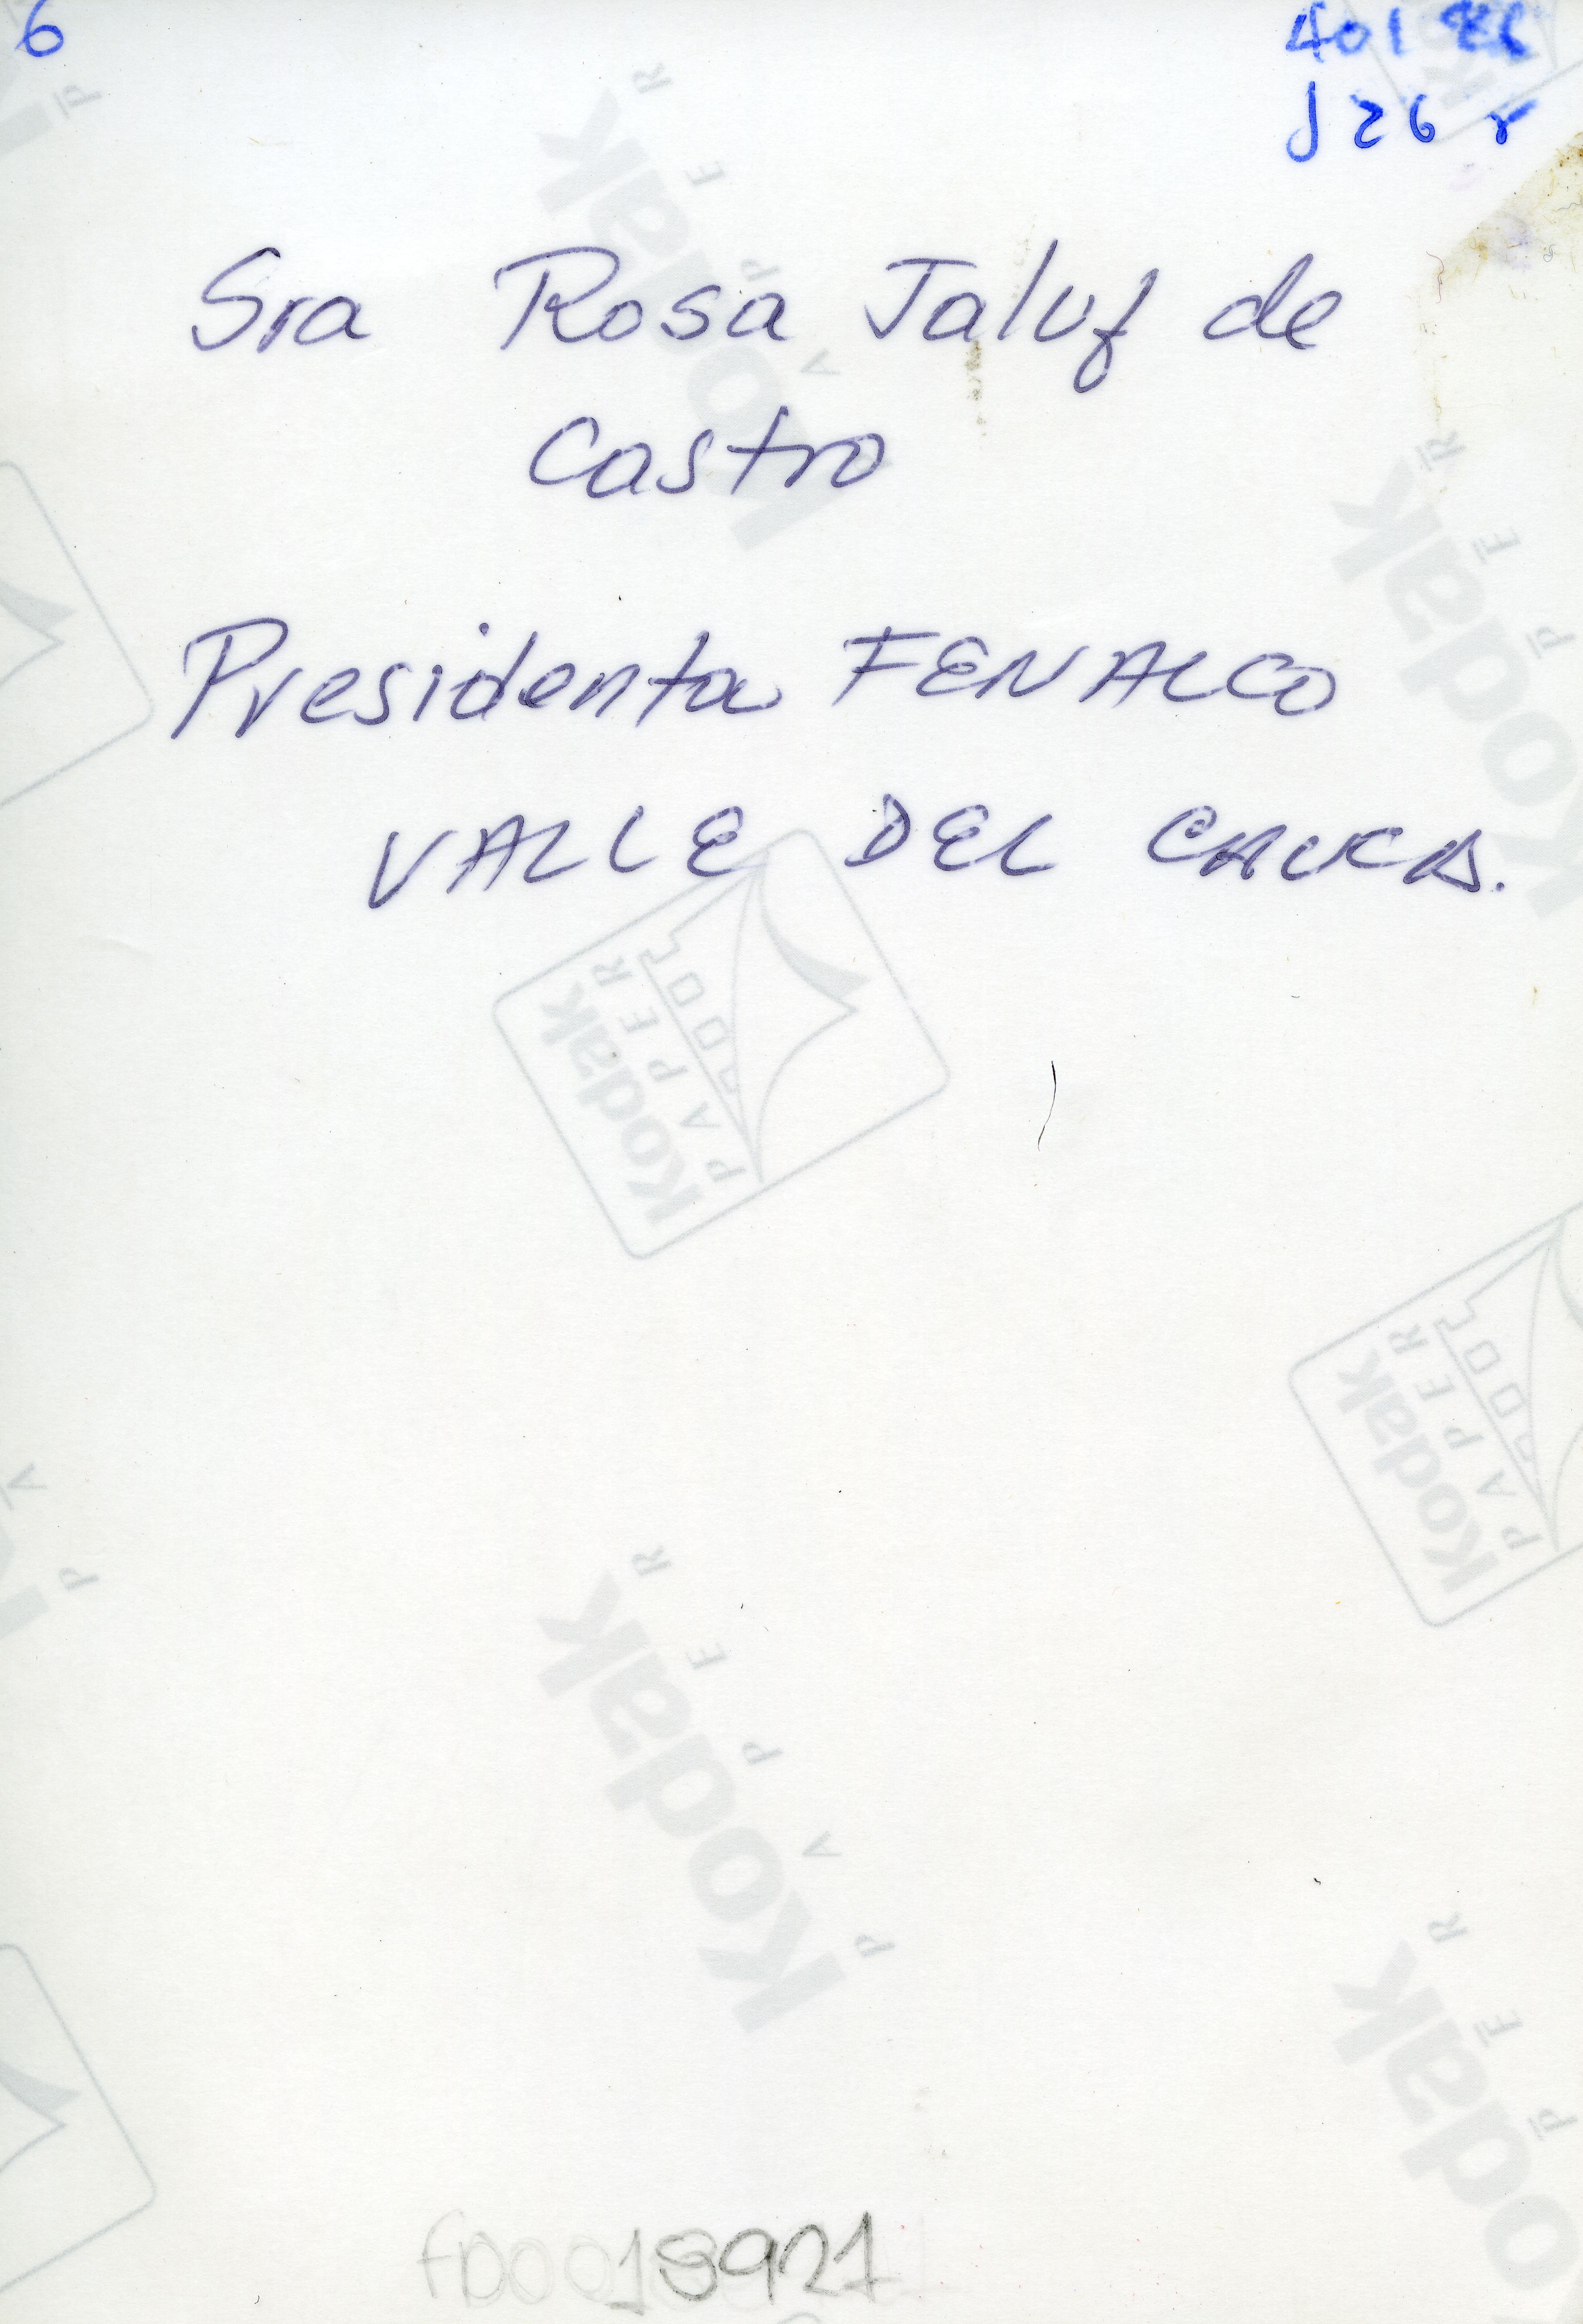 6
401
J26r
Sra Rosa Jaluf de
Castro
Presidenta FENALCO
VALLE DEL CAUCA.
Kodak
PAPER
Kodak
PAPER
Kodak
PAPER
Kodak
PAPER
Kodak
PAPER